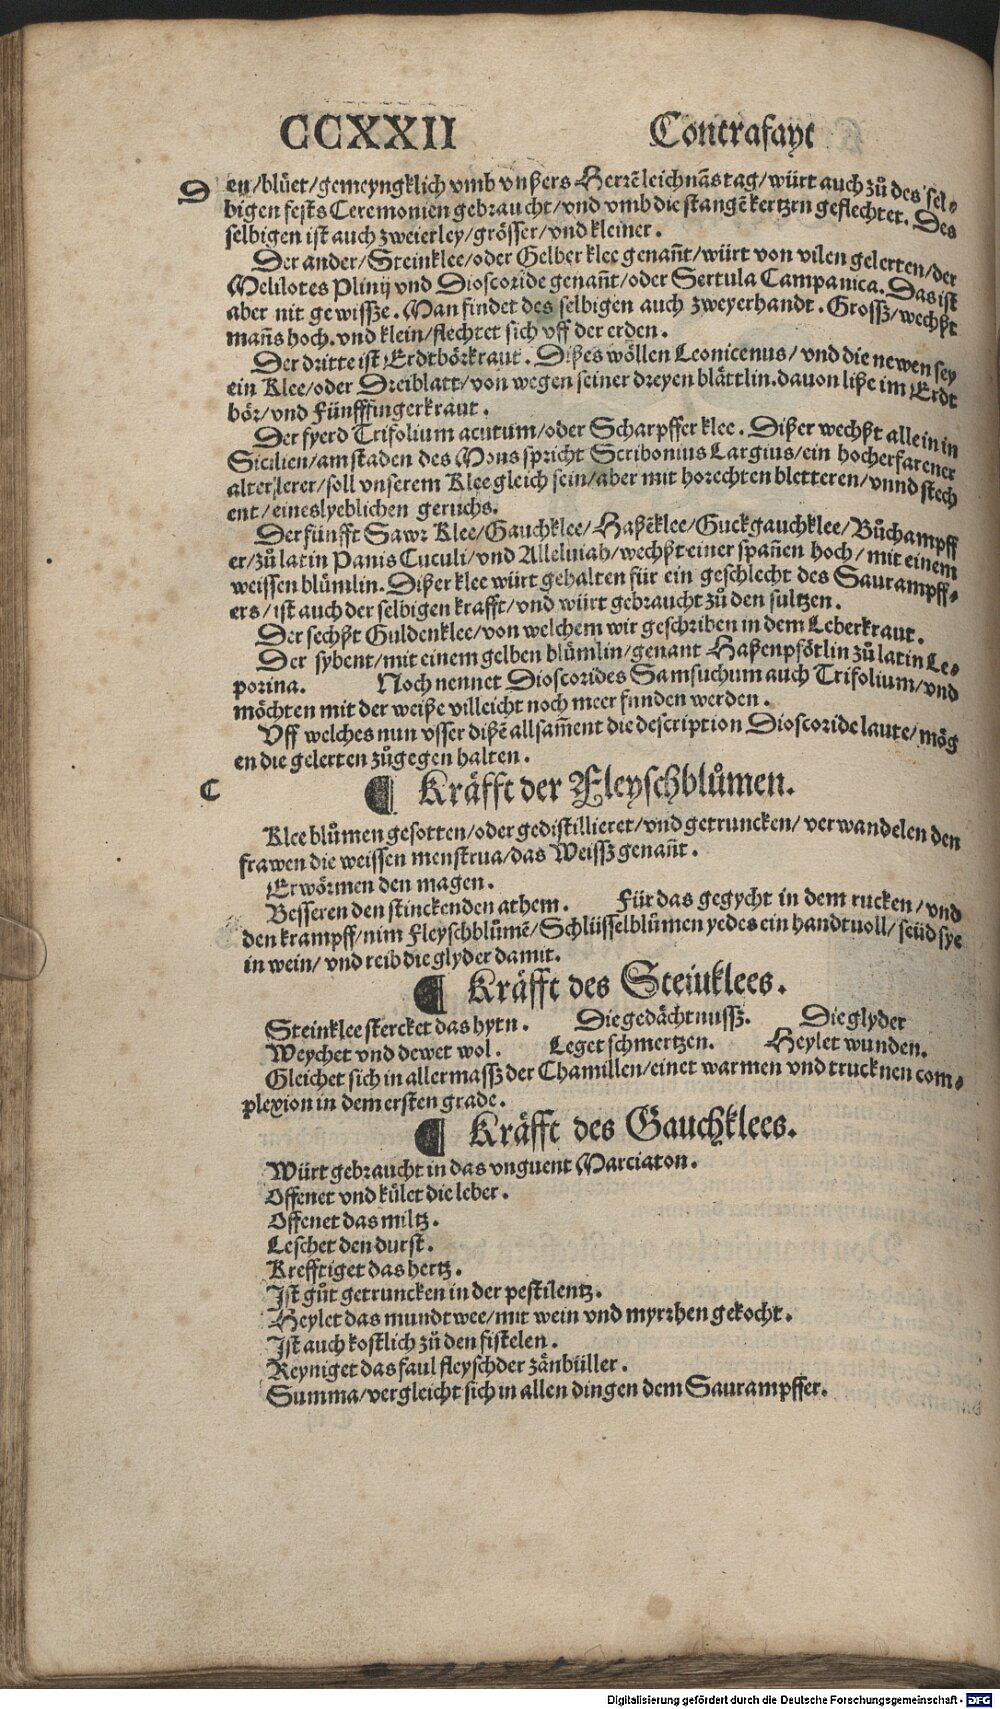 CCXXII Contrafayt
en/blüet/gemeyngklich vmb vnßers Herrẽ leichnãs tag/würt auch zů des sel⸗
bigen fests Ceremonien gebraucht/vnd vmb die stangẽ kertzen geflechtet. Des
selbigen ist auch zweierley/grösser/vnd kleiner.
Der ander/Steinklee/oder Gelber klee genañt/würt von vilen gelerten/der
Melilotes Plinij vnd Dioscoride genañt/oder Sertula Campanica. Das ist
aber nit gewissze. Man findet des selbigen auch zweyerhandt. Grossz/wechßt
mañs hoch. vnd klein/flechtet sich vff der erden.
Der dritte ist Erdtbörkraut. Dißes wöllen Leonicenus/vnd die newen sey
ein Klee/oder Dreiblatt/von wegen seiner dreyen blättlin. dauon liße im Erdt
bör/vnd Fünfffingerkraut.
Der fyerd Trifolium acutum/oder Scharpffer klee. Dißer wechßt allein in
Sicilien/am staden des Mons spricht Scribonius Largius/ein hocherfarener
alter lerer/soll vnserem Klee gleich sein/aber mit horechten bletteren/vnnd stech
ent/eines lyeblichen geruchs.
Der fünfft Sawr Klee/Gauchklee/Haßẽklee/Guckgauchklee/Bůchampff
er/zů latin Panis Cuculi/vnd Alleluiah/wechßt einer spañen hoch/mit einem
weissen blümlin. Dißer klee würt gehalten für ein geschlecht des Saurampff⸗
ers/ist auch der selbigen krafft/vnd würt gebraucht zů den sultzen.
Der sechßt Guldenklee/von welchem wir geschriben in dem Leberkraut.
Der sybent/mit einem gelben blümlin/genant Haßenpfötlin zů latin Le⸗
porina. Noch nennet Dioscorides Samsuchum auch Trifolium/vnd
möchten mit der weiße villeicht noch meer funden werden.
Vff welches nun vsser dißẽ allsam̃ent die description Dioscoride laute/mög
en die gelerten zůgegen halten.
C ¶ Kräfft der Fleyschblůmen.
Klee blůmen gesotten/oder gedistillieret/vnd getruncken/verwandelen den
frawen die weissen menstrua/das Weissz genañt.
Erwörmen den magen.
Besseren den stinckenden athem. Für das gegycht in dem rucken/vnd
den krampff/nim Fleyschblůmẽ/Schlüsselblůmen yedes ein handtuoll/seüd sye
in wein/vnd reib die glyder damit.
¶ Kräfft des Steinklees.
Steinklee stercket das hyrn. Die gedächtnussz. Die glyder
Weychet vnd dewet wol. Leget schmertzen. Heylet wunden.
Gleichet sich in allermassz der Chamillen/einer warmen vnd trucknen com⸗
plexion in dem ersten grade.
¶ Kräfft des Gauchklees.
Würt gebraucht in das vnguent Marciaton.
Offenet vnd kület die leber.
Offenet das miltz.
Leschet den durst.
Krefftiget das hertz.
Ist gůt getruncken in der pestilentz.
Heylet das mundtwee/mit wein vnd myrrhen gekocht.
Ist auch kostlich zů den fistelen.
Reyniget das faul fleysch der zänbüller.
Summa/vergleicht sich in allen dingen dem Saurampffer.
Digitalisierung gefördert durch die Deutsche Forschungsgemeinschaft - DFG